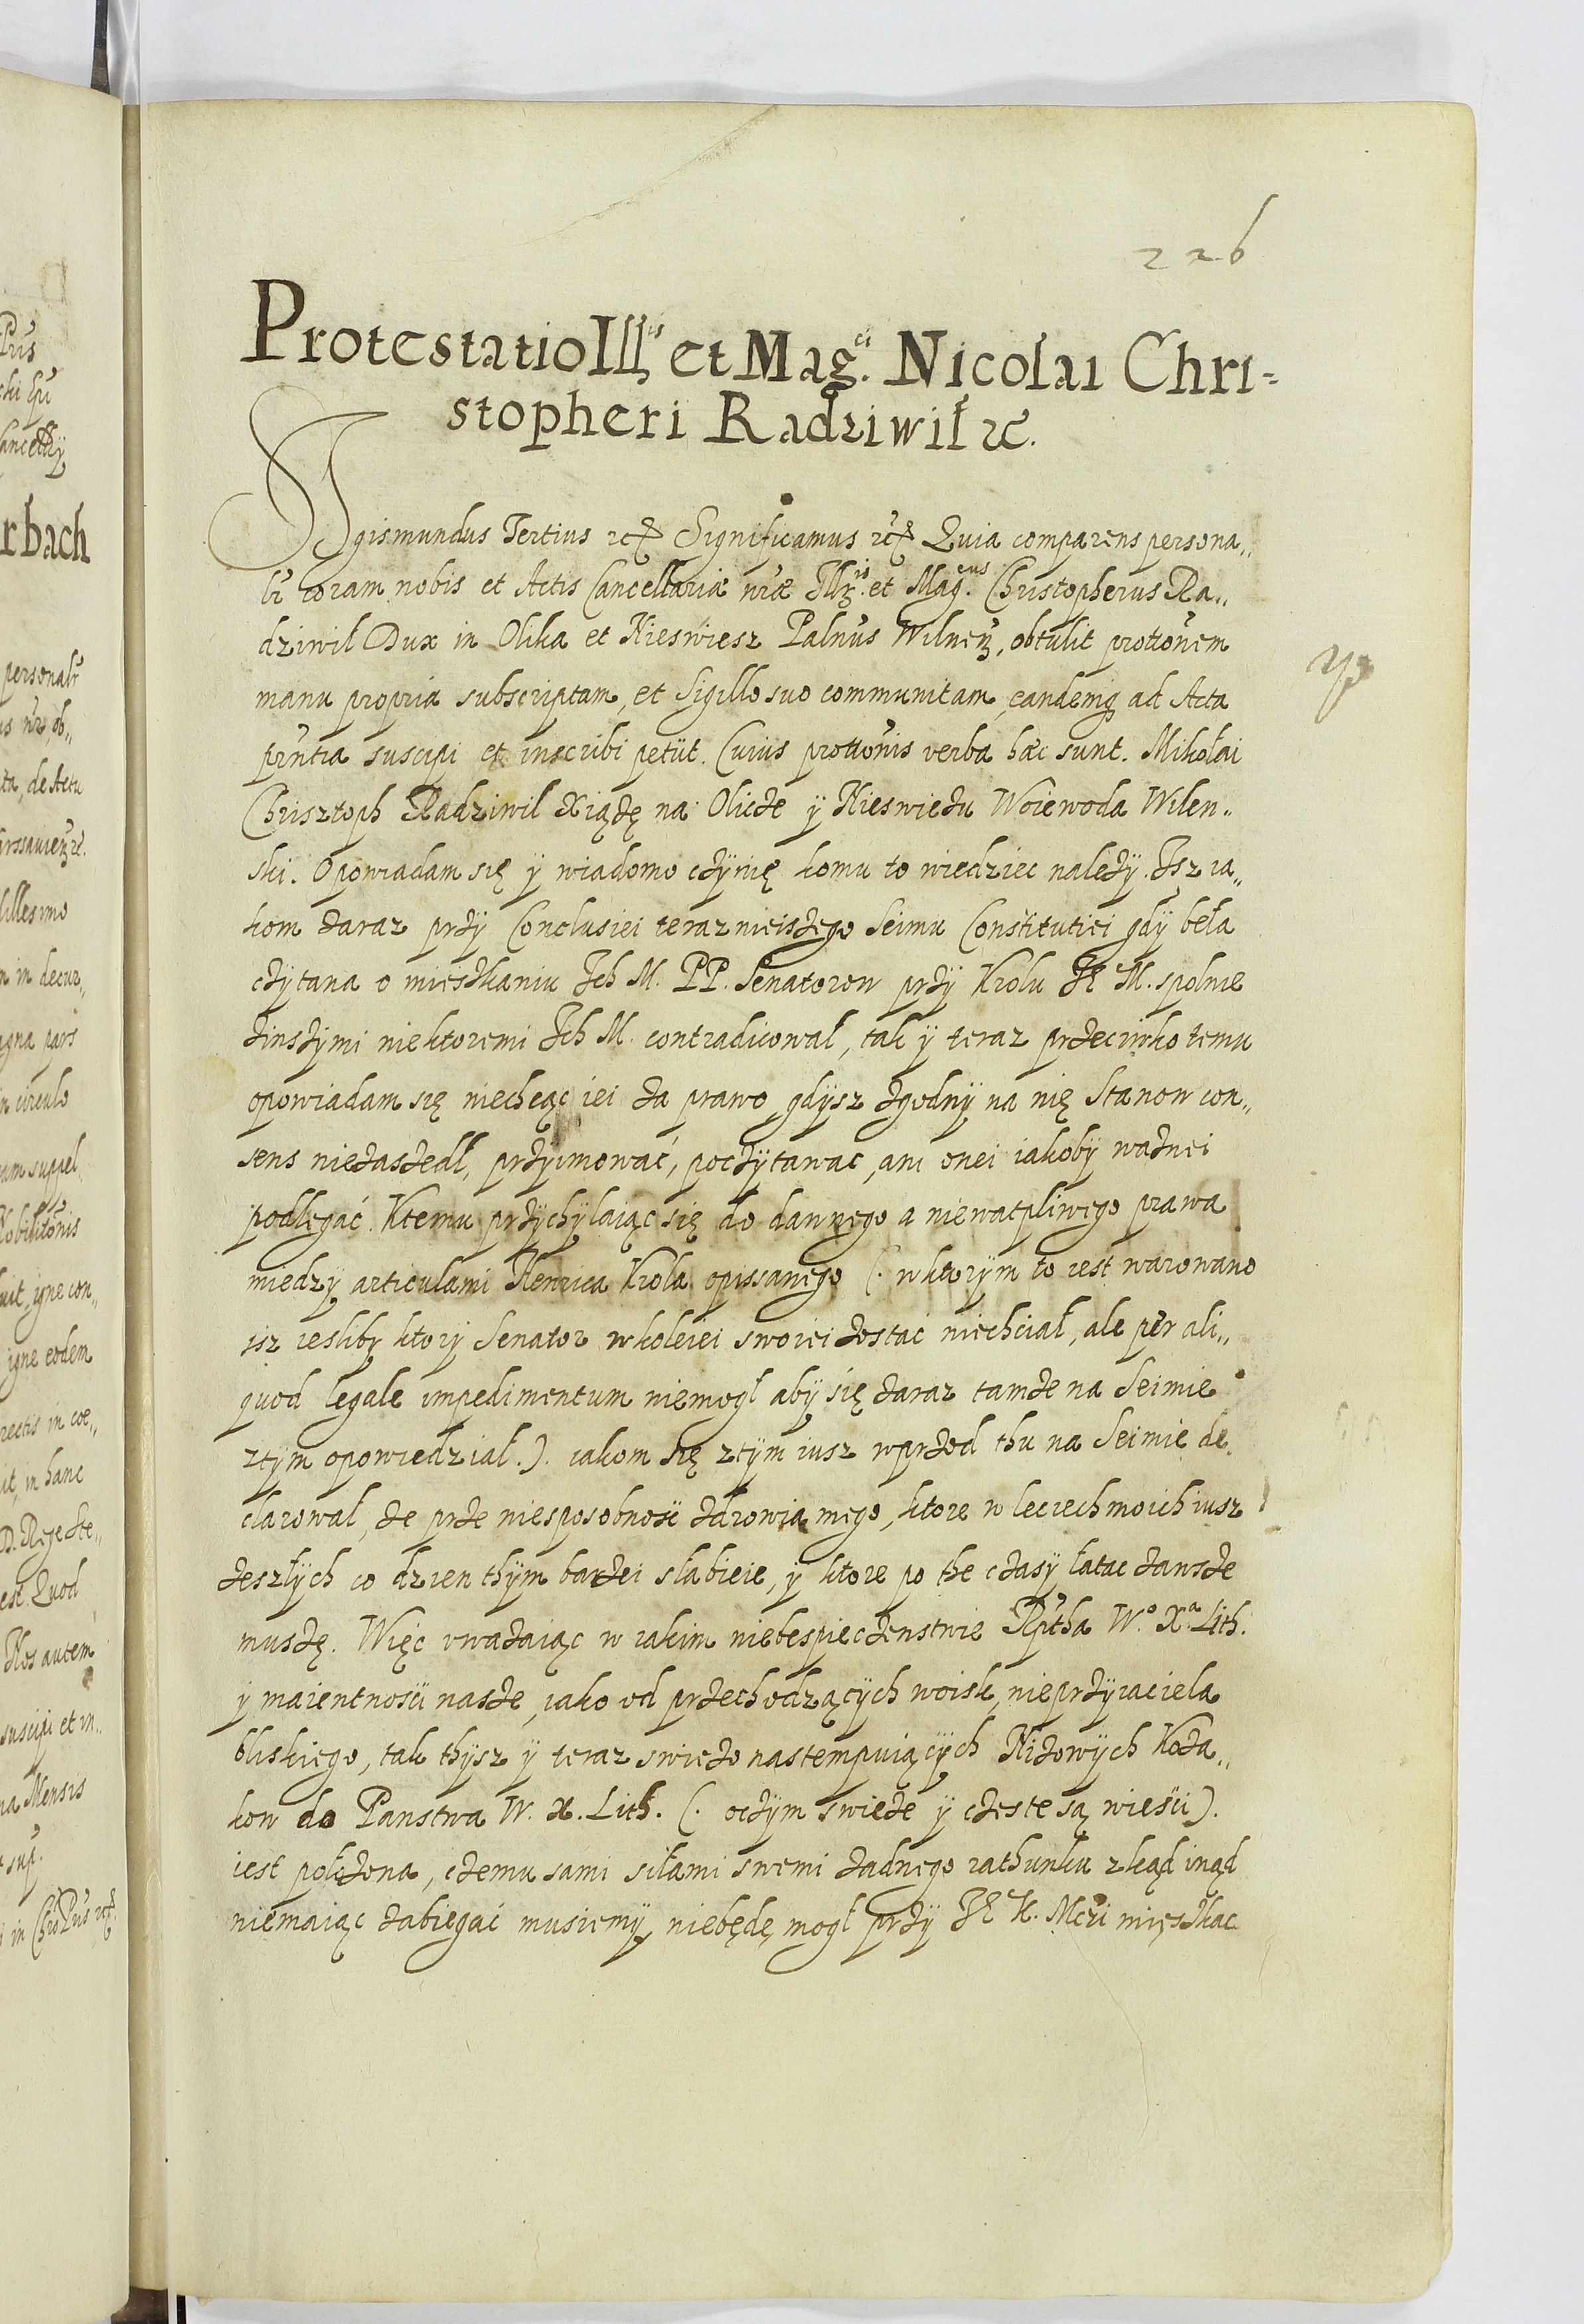 226
Protestatio Illis et Mag.ci Nicolai Chri-
stopheri Radziwił etc.
Sigismundus Tertius etc Significamus etc Quia comparens persona„
lr coram nobis et Actis Cancellariæ nræ Illris et Mag.cus Christopherus Ra„
dziwil Dux in Olika et Nieswiesz Palnus Wilnen, obtulit prottonem
manu propria subscriptam, et Sigillo suo communitam, eandemq ad Acta
prntia suscipi et inscribi petÿt. Cuius prottonis verba hæc sunt. Mikołai
Chrisztoph Radziwil Xiążę na Olicze ÿ Nieswiezu Woiewoda Wilen„
ski. Opowiadam się ÿ wiadomo czÿnię komu to wiedziec należÿ. Isz ia„
kom zaraz przÿ Conclusiei teraznieiszego Seimu Constitutiei gdÿ beła
czÿtana o mieszkaniu Ich M. PP. Senatorow przÿ Krolu JE M. spolnie
zinszÿmi niektoremi Ich M. contradicowal, tak ÿ teraz przeciwko temu
opowiadam się niechcąc iei za prawo gdÿsz zgodnÿ na nię Stanow con„
sens niezaszedl, przÿimować, poczÿtawac, ani onei iakobÿważnei
podlegać. Ktemu przÿchÿlaiąc się do dawnego a niewatpliwego prawa
miedzy articulami Henrica Krola opissanego (. wktorÿm to iest warowano
isz iesliby ktorÿ Senator wkoleiei swoiei zostac niechciał, ale per ali„
quod legale impedimentum niemogł abÿ się zaraz tamze na Seimie
ztÿm opowiedzial.). iakom się ztÿm iusz wprzod thu na Seimie de„
clarowal, ze prze niesposobnosc zdrowia mego, ktore w leciech moich iusz
zeszłÿch co dzien thÿm bardzei słabieie, ÿ ktore po the czasÿ łatac zawsze
muszę. Więc uważaiąc w iakim niebespieczenstwie Rptha W.o X.a Lith.
ÿ maientnosci nasze, iako od przechodzącÿch woisk, nieprzÿiaciela
bliskiego, tak thÿsz ÿ teraz swiezo nastempuiącÿch Nizowÿch Koza„
kow do Panstwa W. X. Lith. (. oczÿm swieze ÿ czeste są wiesci).
iest położona, czemu sami siłami swemi zadnego rathunku zkąd inąd
niemaiąc zabiegać musiemÿ, niebędę mogł przÿ JE K. Mczi mięszkac